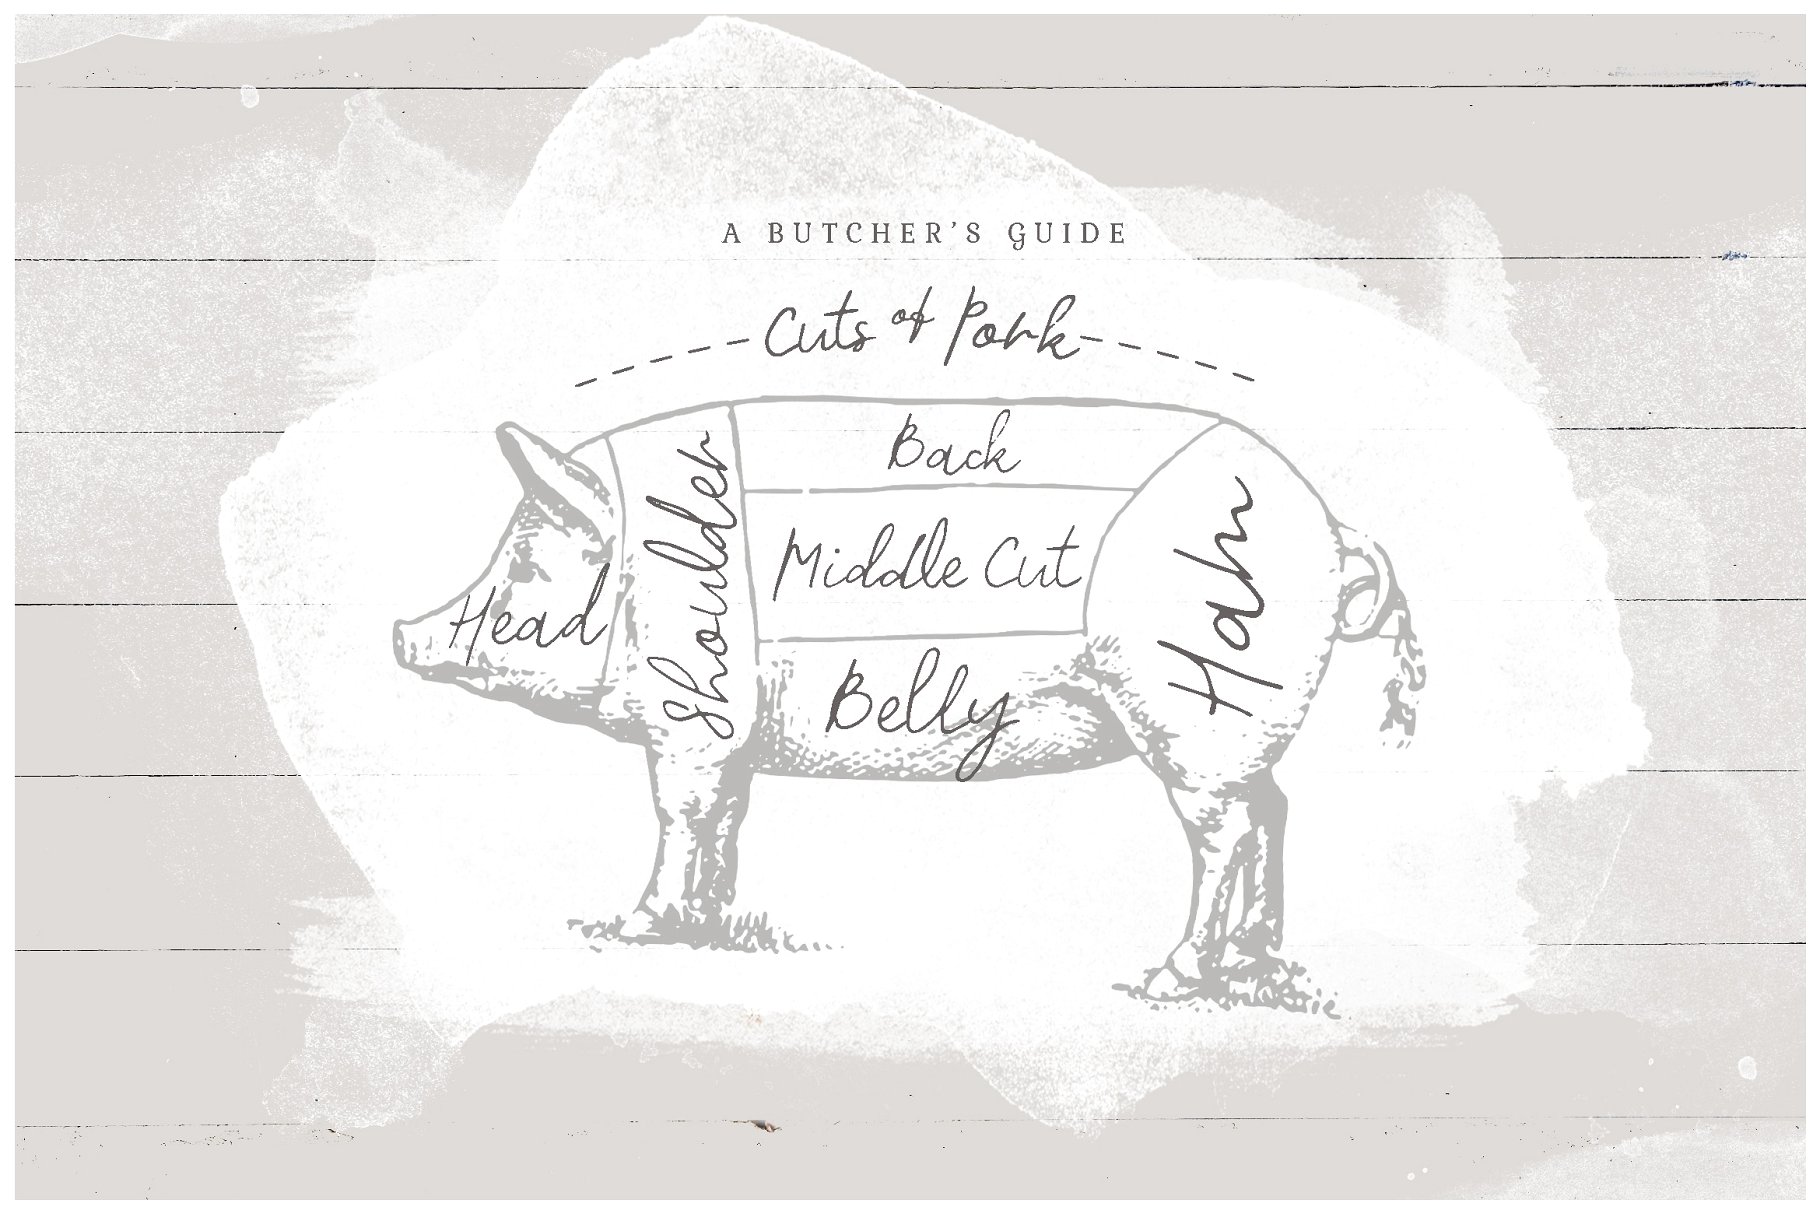 A BUTCHER'S GUIDE
Cuts of Pork
Back
Shoulder
Middle Cut
Ham
Head
Belly